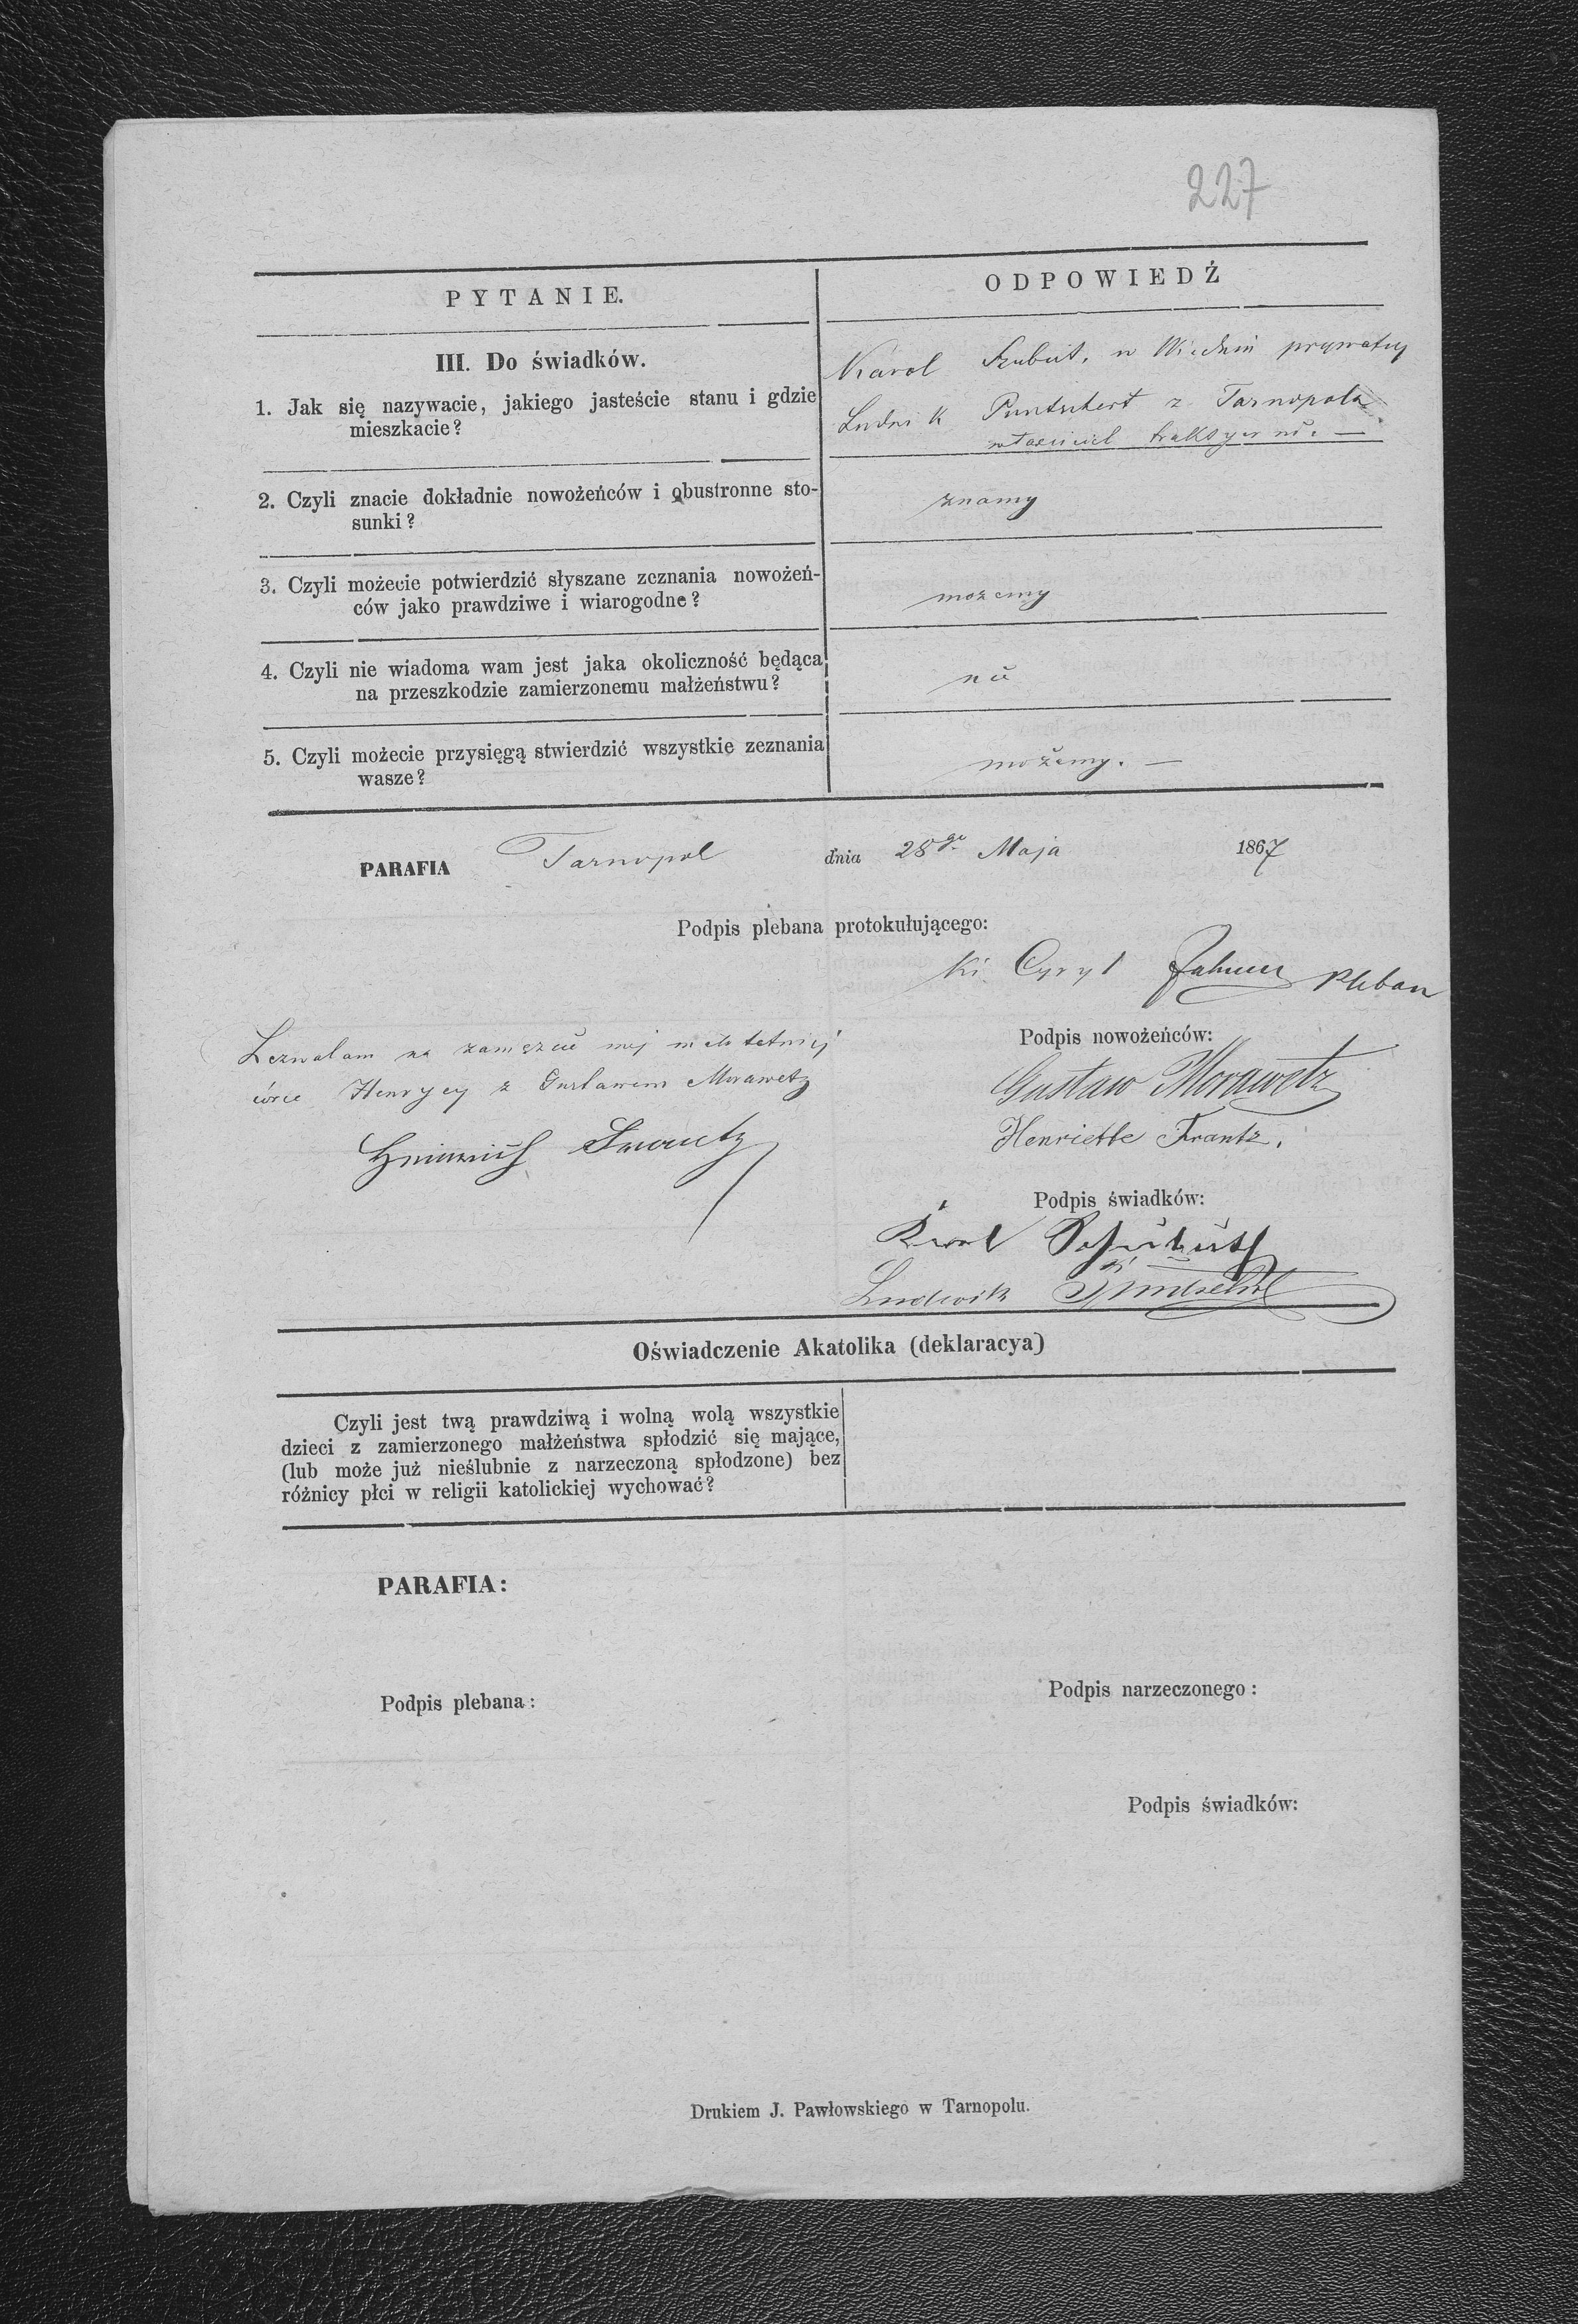 227
PYTANIE.
ODPOWIEDŹ
III. Do świadków.
1. Jak się nazywacie, jakiego jasteście stanu i gdzie
mieszkacie?
Karol Szubut, w Wiedniu prywatny
Ludwik Puntschert z Tarnopola
właściciel traktyerni. —
2. Czyli znacie dokładnie nowożeńców i obustronne sto-
sunki?
znamy
3. Czyli możecie potwierdzić słyszane zeznania nowożeń-
ców jako prawdziwe i wiarogodne?
możemy
4. Czyli nie wiadoma wam jest jaka okoliczność będąca
na przeszkodzie zamierzonemu małżeństwu?
nie
5. Czyli możecie przysięgą stwierdzić wszystkie zeznania
wasze?
możemy. —
PARAFIA Tarnopol dnia 28go Maja 1867
Podpis plebana protokułującego:
Cyryl Pleban
Zezwalam na zamęzcie mej małoletniej
córce Henryey z Gustawem Morawetz
Heinrich Frantz
Podpis nowożeńców:
Gustaw Morawetz
Henriette Frantz.
Podpis świadków:
Karol
Ludwik
Oświadczenie Akatolika (deklaracya)
Czyli jest twą prawdziwą i wolną wolą wszystkie
dzieci z zamierzonego małżeństwa spłodzić się mające,
(lub może już nieślubnie z narzeczoną spłodzone) bez
różnicy płci w religii katolickiej wychować?
PARAFIA:
Podpis plebana:
Podpis narzeczonego:
Podpis świadków:
Drukiem J. Pawłowskiego w Tarnopolu.